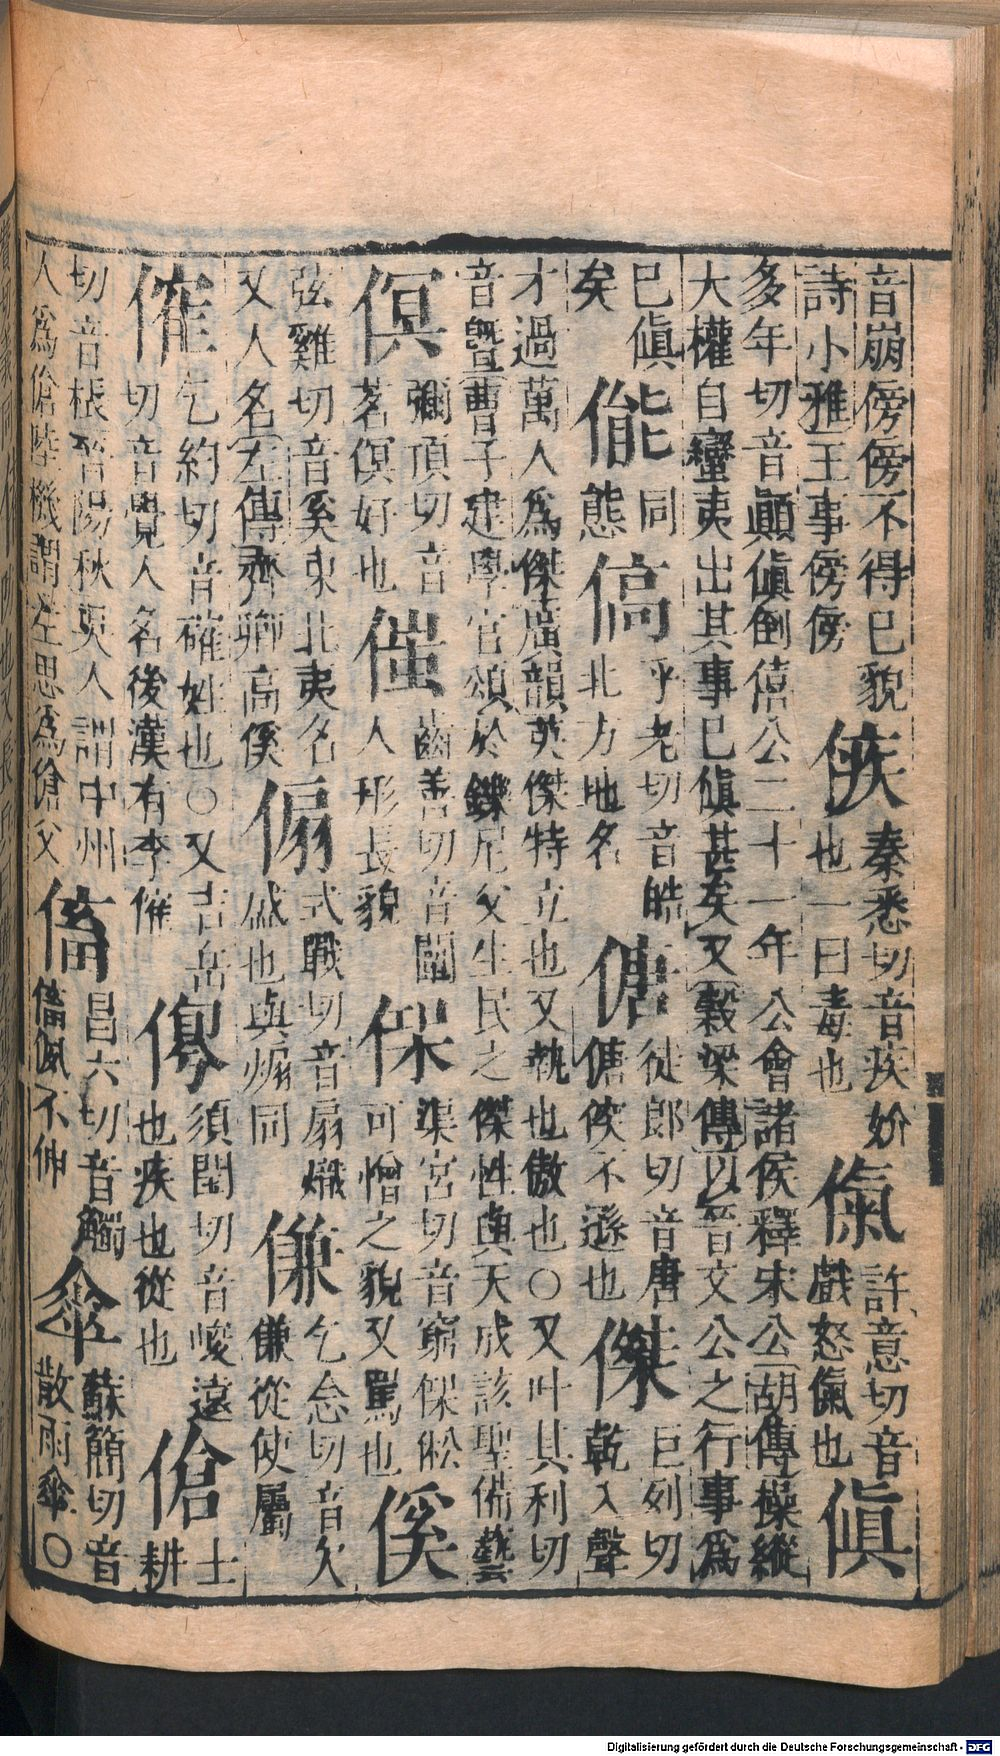 音崩傍傍不得已貌
詩小雅王事傍傍
㑵
秦悉切音疾妎
也一曰毒也
㑶
許意切音
戲怒㑶也
傎
多年切音顚傎倒僖公二十一年公會諸侯釋宋公胡傳操縱
大權自蠻夷出其事已傎甚矣又榖梁傳以晉文公之行事爲
已傎
矣
能
同
態
傐
呼老切音皓
北方地名
傏
徒郎切音唐
傏㑽不遜也
傑
巨列切
乾入聲
才過萬人爲傑廣韻英傑特立也又執也傲也○又叶其利切
音曁曹子建學官頌於鑠尼父生民之傑性與天成該聖備藝
㒋
彌頂切音
茗㒋好也
㒓
齒善切音闡
人形長貌
㑾
渠宮切音窮㑾㑣
可憎之貌又罵也
傒
弦雞切音奚東北夷名
又人名左傳齊卿高傒
傓
式戰切音扇熾
盛也與煽同
傔
乞念切音欠
傔從使屬
傕
乞約切音確姓也○又吉岳
切音覺人名後漢有李傕
㑺
須閏切音峻遠
也疾也從也
傖
士
耕
切音棖晉陽秋吳人謂中州
人爲傖陸機謂左思爲傖父
傗
昌六切音觸
傗㑉不伸
傘
蘇簡切音
散雨傘○
Digitalisierung gefördert durch die Deutsche Forschungsgemeinschaft - DFG